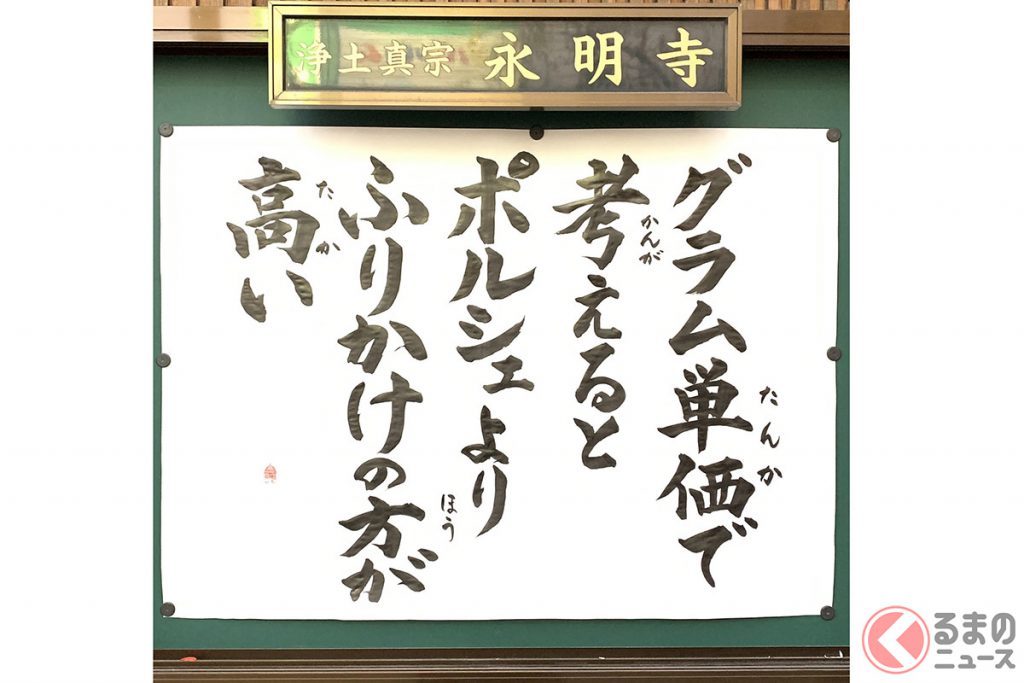 浄土真宗 永明寺
グラム単価で
たんか
考えると
かんが
ポルシェより
ふりかけの方が
ほう
高い
たか
くるまのニュース